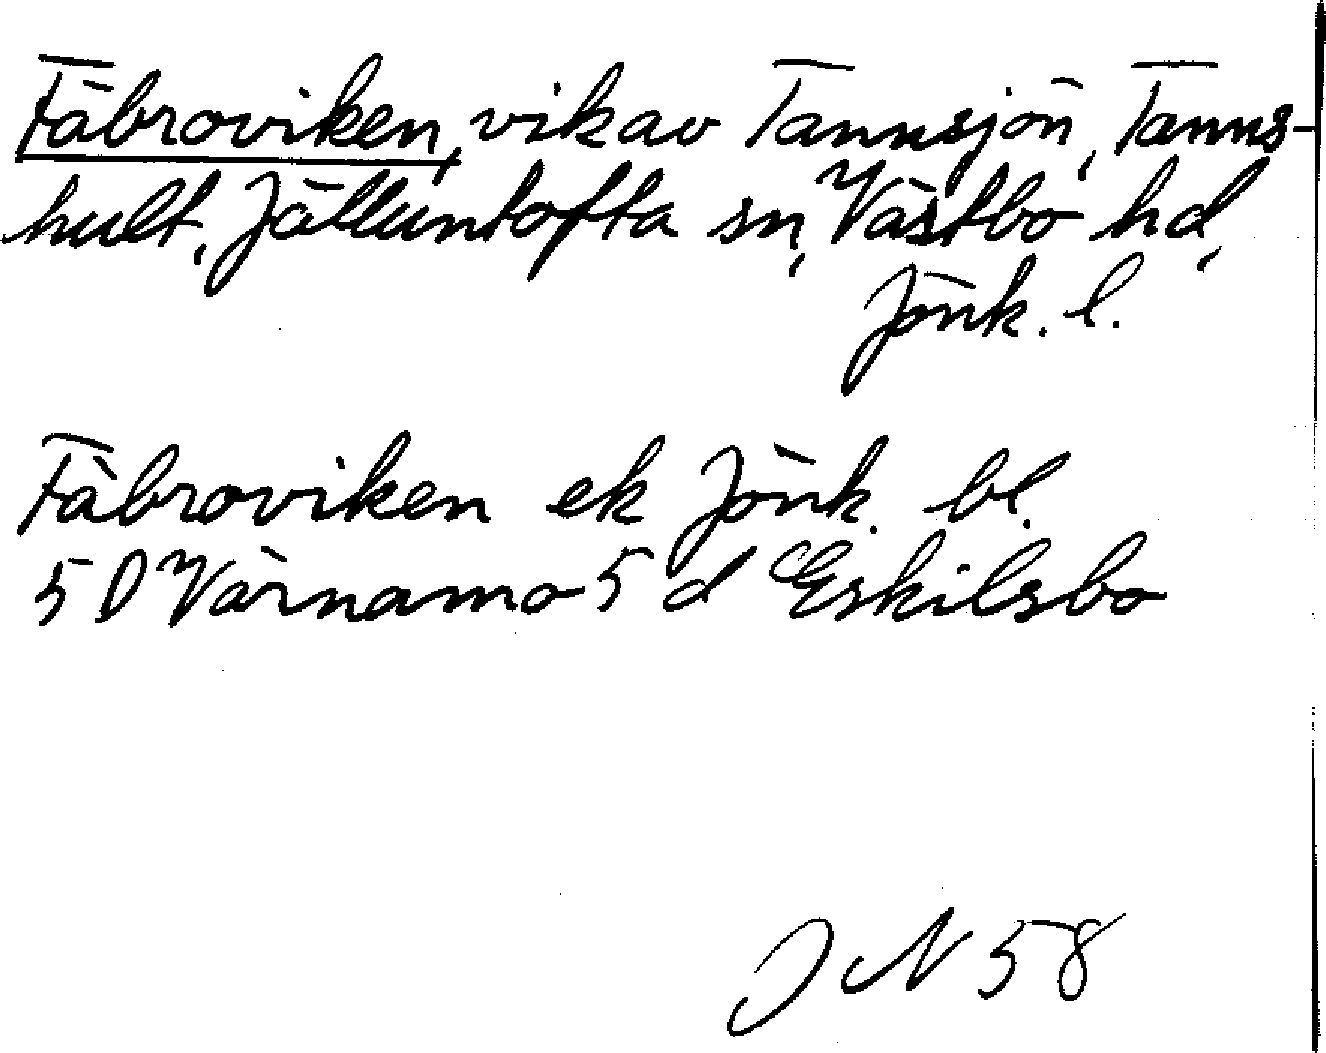 Fäbroviken, vik av Tannsjön, Tanns-
hult, Jälluntofta sn, Västbo hd,
Jönk. l.
Fäbroviken ek Jönk. bl.
5 D Värnamo 5 d Eskilsbo
J N 58